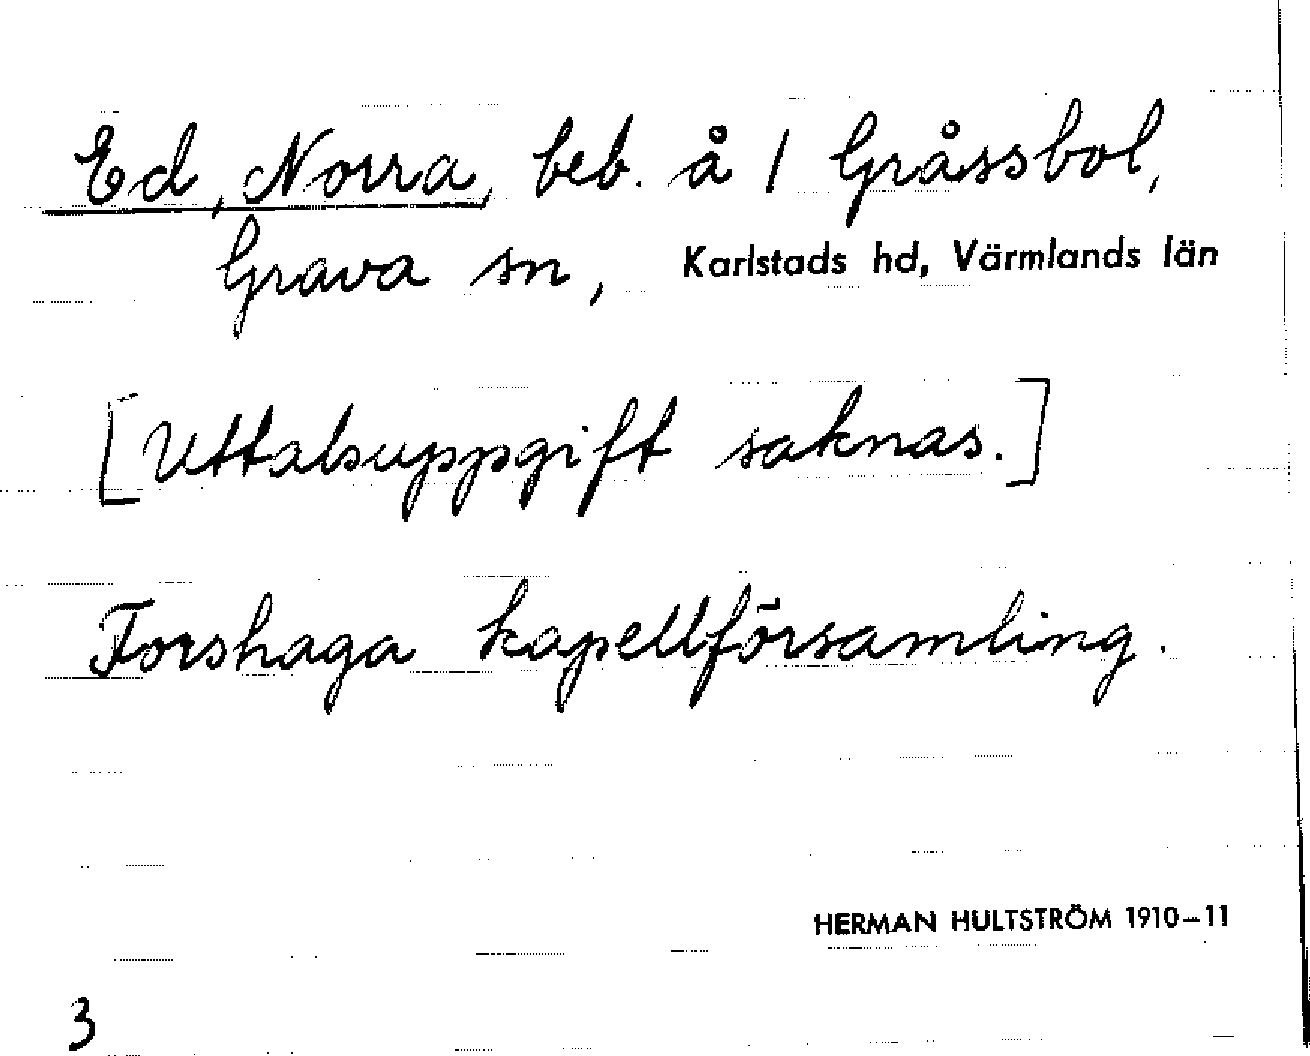 Ed, Norra, beb. å 1 Gråssbol,
Grava sn, Karlstads hd, Värmlands län
[Uttalsuppgift saknas.]
Forshaga kapellförsamling.
HERMAN HULTSTRÖM 1910–11
3